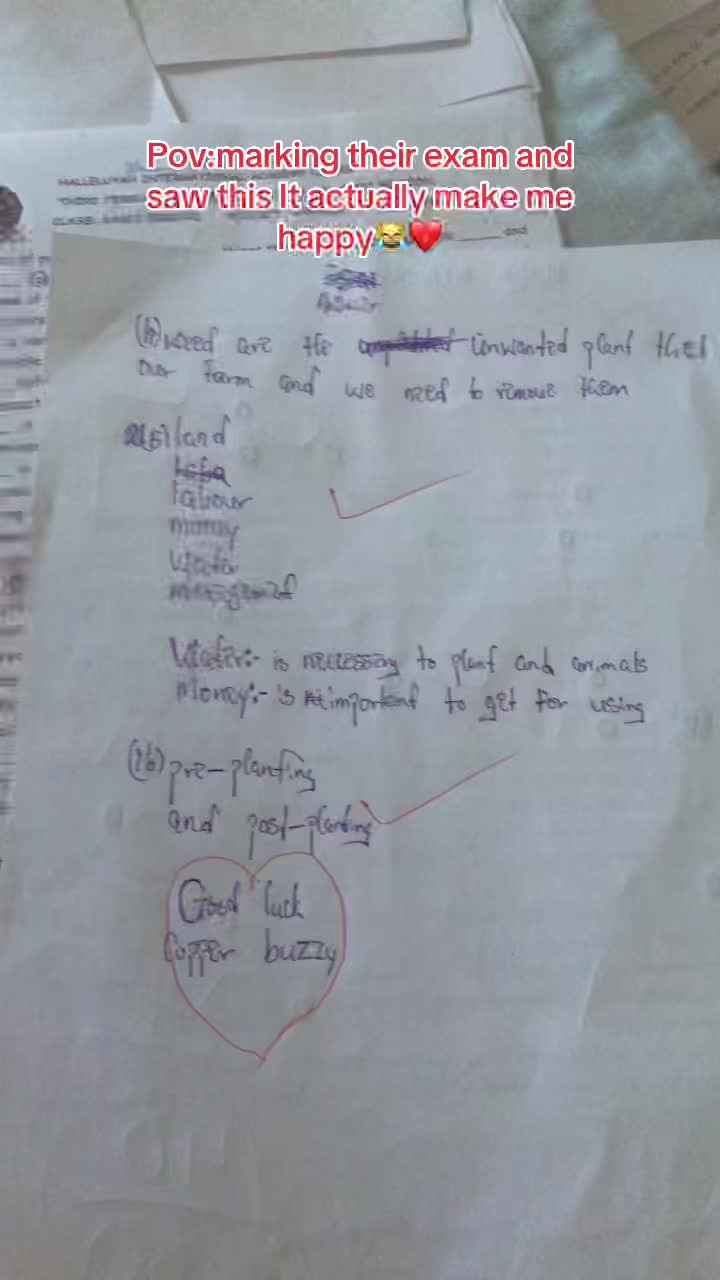 Pov:marking their exam and
saw this It actually make me
happy😹❤️
HALLELUYAH
CLASS:
and
Answer
weed are the unwanted plant that
our farm and we need to remove them
land
labour
money
Water
Water:- is necessary to plant and animals
Money:- is important to get for using
(2b) pre-planting
and post-planting
Good luck
Coffer buzzy